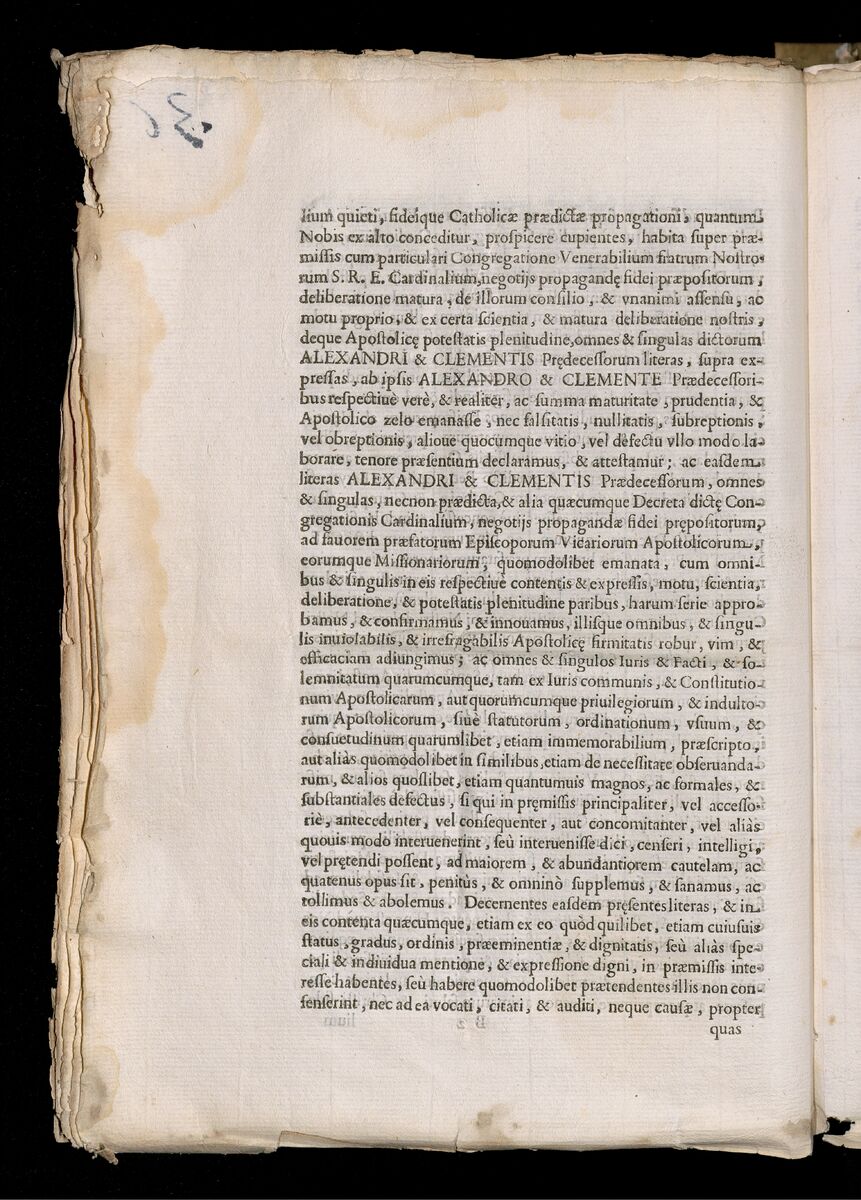 lium quieti, fideique Catholicæ prædictæ propagationi, quantum
Nobis ex alto conceditur, proſpicere cupientes, habita ſuper præ-
miſſis cum particulari Congregatione Venerabilium fratrum Noſtro-
rum S. R. E. Cardinalium, negotijs propagandę fidei præpoſitorum,
deliberatione matura, de illorum conſilio, & vnanimi aſſenſu, ac
motu proprio, & ex certa ſcientia, & matura deliberatione noſtris,
deque Apoſtolicę poteſtatis plenitudine, omnes & ſingulas dictorum
ALEXANDRI & CLEMENTIS Prędeceſſorum literas, ſupra ex-
preſſas, ab ipſis ALEXANDRO & CLEMENTE Prædeceſſori-
bus reſpectiuè verè, & realiter, ac ſumma maturitate, prudentia, &
Apoſtolico zelo emanaſſe, nec falſitatis, nullitatis, ſubreptionis,
vel obreptionis, alioue quocumque vitio, vel defectu vllo modo la-
borare, tenore præſentium declaramus, & atteſtamur; ac eaſdem
literas ALEXANDRI & CLEMENTIS Prædeceſſorum, omnes
& ſingulas, necnon prædicta, & alia quæcumque Decreta dictę Con-
gregationis Cardinalium, negotijs propagandæ fidei prępoſitorum,
ad fauorem præfatorum Epiſcoporum Vicariorum Apoſtolicorum,
eorumque Miſſionariorum, quomodolibet emanata, cum omni-
bus & ſingulis in eis reſpectiuè contentis & expreſſis, motu, ſcientia,
deliberatione, & poteſtatis plenitudine paribus, harum ſerie appro-
bamus, & confirmamus, & innouamus, illiſque omnibus, & ſingu-
lis inuiolabilis, & irrefragabilis Apoſtolicę firmitatis robur, vim, &
efficaciam adiungimus; ac omnes & ſingulos Iuris & Facti, & ſo-
lemnitatum quarumcumque, tam ex Iuris communis, & Conſtitutio-
num Apoſtolicarum, aut quorumcumque priuilegiorum, & indulto-
rum Apoſtolicorum, ſiuè ſtatutorum, ordinationum, vſuum, &
conſuetudinum quarumlibet, etiam immemorabilium, præſcripto,
aut aliàs quomodolibet in ſimilibus, etiam de neceſſitate obſeruanda-
rum, & alios quoſlibet, etiam quantumuis magnos, ac formales, &
ſubſtantiales defectus, ſi qui in pręmiſſis principaliter, vel acceſſo-
riè, antecedenter, vel conſequenter, aut concomitanter, vel aliàs
quouis modo interuenerint, ſeù interueniſſe dici, cenſeri, intelligi,
vel prętendi poſſent, ad maiorem, & abundantiorem cautelam, ac
quatenus opus ſit, penitùs, & omninò ſupplemus, & ſanamus, ac
tollimus & abolemus. Decernentes eaſdem pręſentes literas, & in
eis contenta quæcumque, etiam ex eo quòd quilibet, etiam cuiuſuis
ſtatus, gradus, ordinis, præeminentiæ, & dignitatis, ſeù aliàs ſpe-
ciali & indiuidua mentione, & expreſſione digni, in præmiſſis inte-
reſſe habentes, ſeù habere quomodolibet prætendentes illis non con-
ſenſerint, nec ad ea vocati, citati, & auditi, neque cauſæ, propter
quas